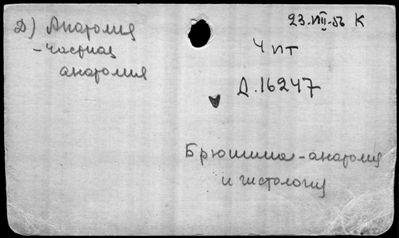 Д) Анатомия
- частная
анатомия
23.VIII-56 К
4 пт
Д.16247
Брюшина - анатомия
и гистология